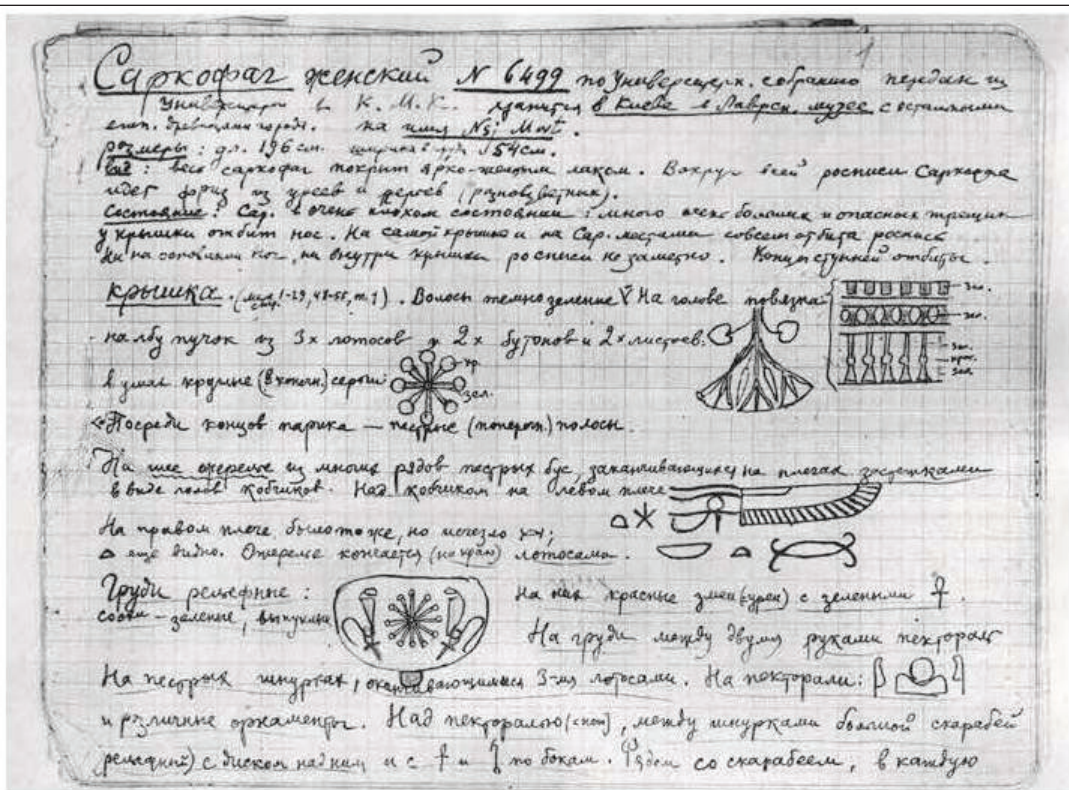 1
Саркофаг женский N 6499 по Университетск. собранию передан из
Университета в К. М. К. хранится в Киеве в Лаврск. музее с остальными
егип. древностями города. на имя Nsj Mwt.
размеры: дл. 196 см. ширина в груди 54 см.
вид: весь саркофаг покрыт ярко-желтым лаком. Вокруг всей росписи Саркофага
идет фриз из уреев и перьев (разноцветных).
Состояние: Сар. в очень плохом состоянии: много очень больших и опасных трещин
у крышки отбит нос. На самой крышке и на Сар. местами совсем отбита роспись
Ни на основании ног, ни внутри крышки росписи не заметно. Концы ступней отбиты.
крышка. 1-29, 48-55, Волосы темнозеленые На голове повязка
на лбу пучок из 3х лотосов и 2х бутонов и 2х листьев.
зел.
зел.
зел.
крас.
зел.
в ушах круглые (8 конечн.) серьги
кр.
зел.
Посреди концов парика — пестрые (попереч.) полосы.
На шее ожерелье из многих рядов пестрых бус, заканчивающихся на плечах застежками
в виде голов кобчиков. Над кобчиком на левом плече
На правом плече было тоже, но исчезло
еще видно. Ожерелье кончается (на краю) лотосами.
Груди рельефные: На них красные змеи (уреи) с зелеными
соски — зеленые, выпуклые
На груди между двумя руками пектораль
На пестрых шнурках, оканчивающимися 3-мя лотосами. На пекторали:
и различные орнаменты. Над пекторалью, между шнурками большой скарабей
рельефный) с диском над ним и с и по бокам. Рядом со скарабеем, в каждую